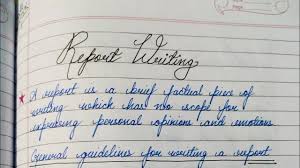 Report Writing
A report is a brief factual piece of
writing which has no scope for
expressing personal opinions and emotions
General guidelines for writing a report